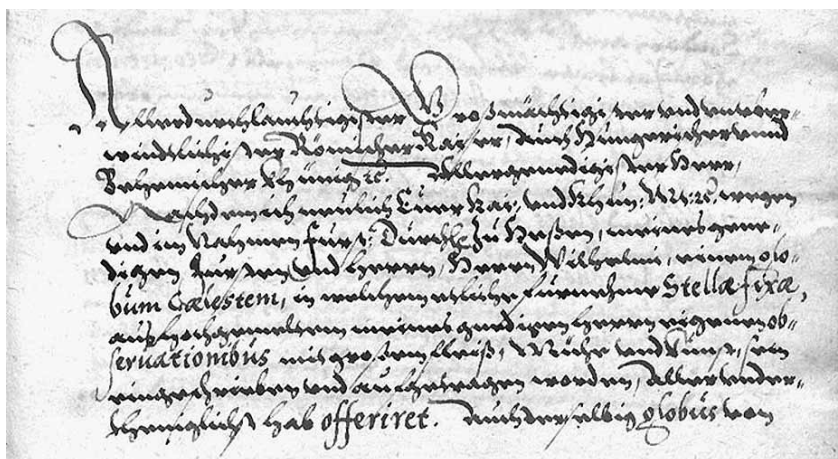 Allerdurchlauchtigister Großmächtigister vnd vnüber-
windtlichister Römischer Kaiser, auch Hungerischer vnnd
Behemischer Khünig ꝛc. Allergenedigister Herr,
Nachdem ich neulich Euer Kay: vnd Khün: Mt: ꝛc. wegen
vnd im Nahmen Fürst: Durchl. zu Heßen, meines gene-
digen Fürsten vnd Herrn, Herrn Wilhelm, einen glo-
bum Cælestem, in welchem etliche fürnehme Stellæ fixæ,
auß hochgemeltem meines gnedigen Herrn eigenen ob-
seruationibus mit großem fleiß, Mühe vnd Kunst, sein
eingeschrieben vnd aufgetragen worden, Aller vnder-
theniglichst hab offeriret. Auch derselbig globus von